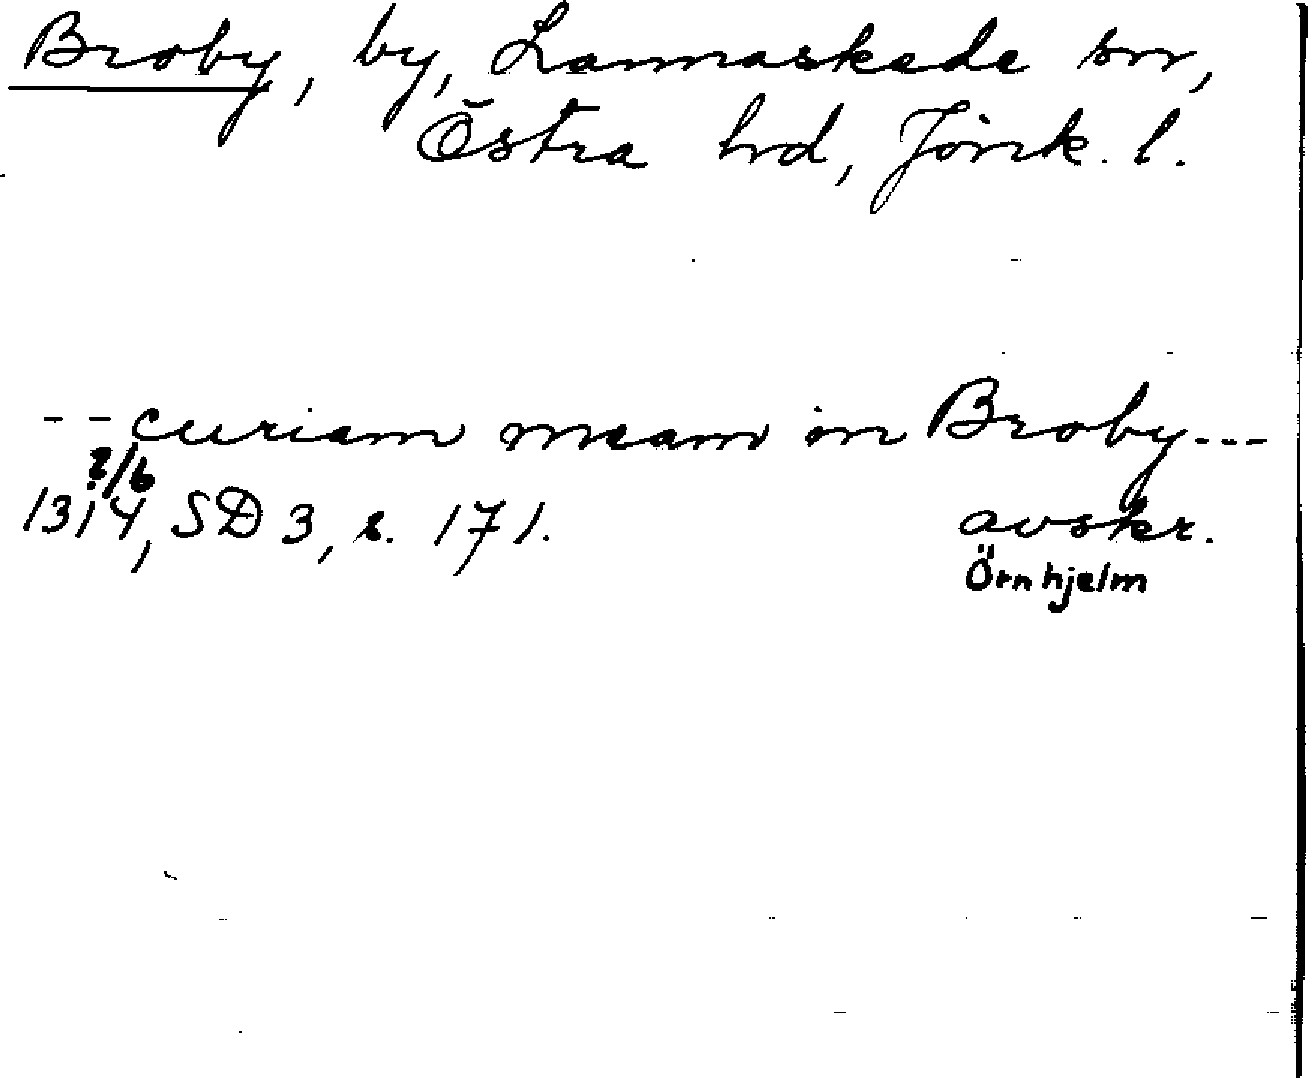 Broby, by, Lannaskede sn,
Östra hd, Jönk. l.
- - curiam meam in Broby ---
2/6
1314, SD 3, s. 171. avskr.
Örnhjelm